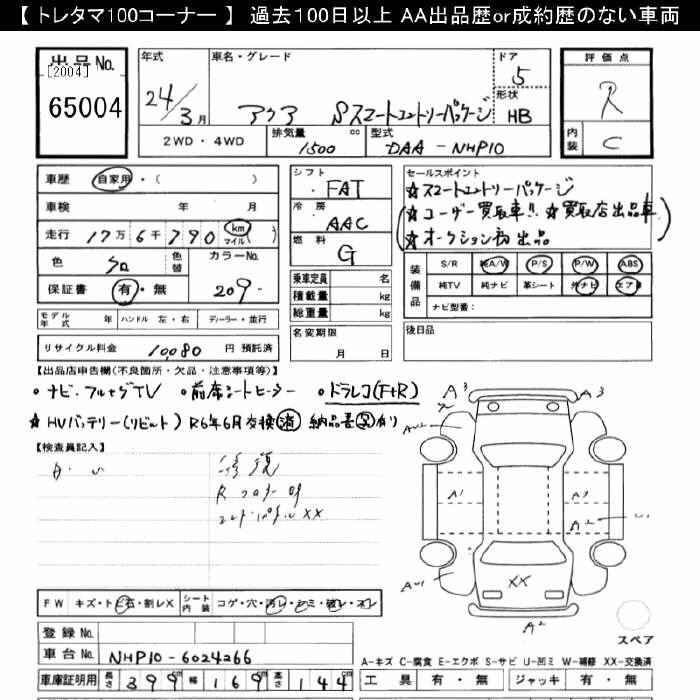 【 トレタマ100コーナー 】 過去100日以上 AA出品歴or成約歴のない車両
出品 No.
[2004]
65004
年式
24/3月
車名・グレード
アクア Sスマートエントリーパッケージ
ドア
5
形状
HB
2WD・4WD
排気量
1500 cc
型式
DAA-NHP10
評価点
R
内装
C
車歴 自家用・( )
車検 年 月
走行 17万6千790 km マイル
色 クロ 色替 カラーNo.
保証書 有・無 209-
モデル年式 年 ハンドル 左・右 ディーラー・並行
リサイクル料金 10,080 円 預託済
シフト
FAT
冷房
AAC
燃料
G
乗車定員 名
積載量 kg
総重量 kg
名変期限
月 日
セールスポイント
★スマートエントリーパッケージ
★ユーザー買取車!! ★買取店出品車
★オークション初出品
装備品
S/R 純A/W P/S P/W ABS
純TV 純ナビ 革シート 外ナビ エアB
ナビ型番:
後日品
【出品店申告欄(不良箇所・欠品・注意事項等)】
・ナビ・フルセグTV ・前席シートヒーター ・ドラレコ(F+R)
★HVバッテリー(リビルト) R6年6月交換済 納品書写有り
【検査員記入】
修復
Rフロアー
エンドパネルXX
FW キズ・トビ石・割レX シート内装 コゲ・穴・汚レ・シミ・破レ・スレ
登録 No.
車台 No. NHP10-6024266
車庫証明用 長さ 399 幅 169 高さ 144
A3 A3
A1
A2
XX
A2
スペア
A-キズ C-腐食 E-エクボ S-サビ U-凹ミ W-補修 XX-交換済
工具 有・無 ジャッキ 有・無